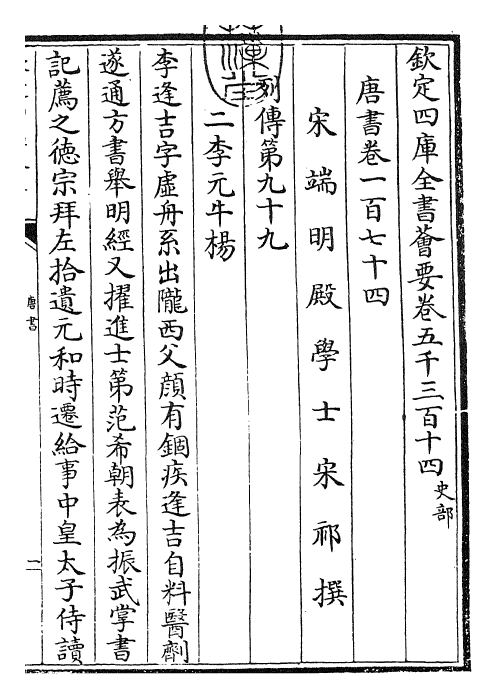 欽定四庫全書薈要卷五千三百十四 史部
唐書卷一百七十四
宋端明殿學士宋祁撰
列傳第九十九
二李元牛楊
李逢吉字虛舟系出隴西父顔有錮疾逢吉自料醫劑
遂通方書舉明經又擢進士第范希朝表為振武掌書
記薦之徳宗拜左拾遺元和時遷給事中皇太子侍讀
唐書
一